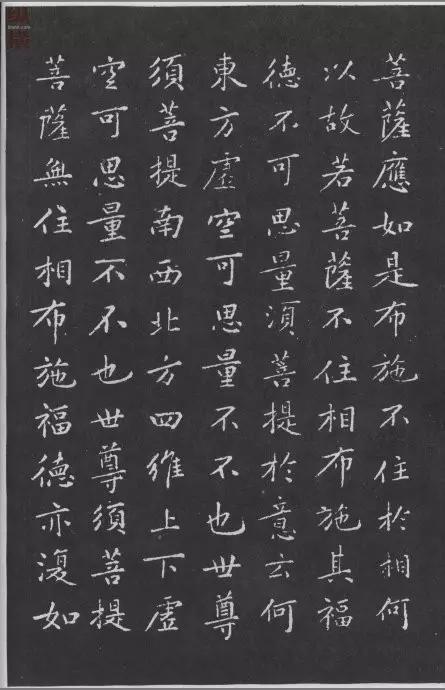 菩薩應如是布施不住於相何
以故若菩薩不住相布施其福
德不可思量須菩提於意云何
東方虛空可思量不不也世尊
須菩提南西北方四維上下虛
空可思量不不也世尊須菩提
菩薩無住相布施福德亦復如